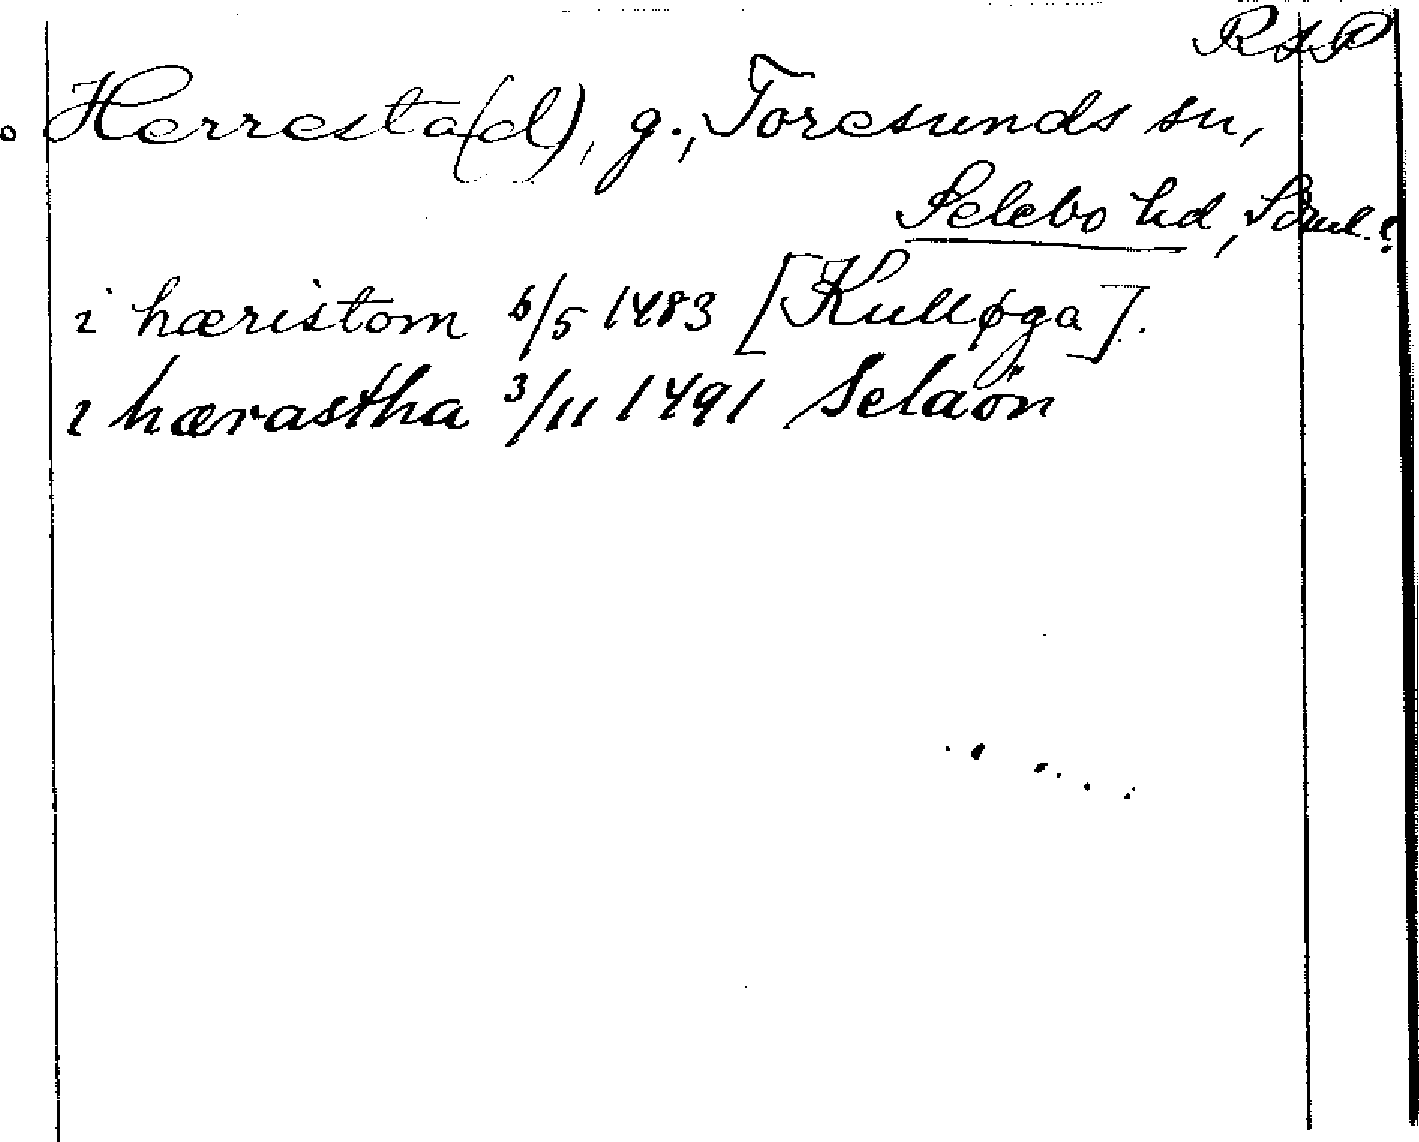 RSP
Herresta(d), g., Toresunds sn,
Selebo hd, Söml.?
i hæristom 6/5 1483 [Kulløga].
i hærastha 3/11 1491 Selaön